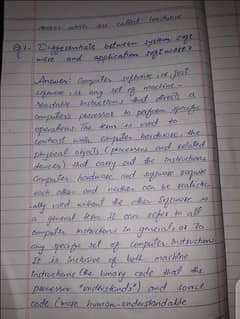 which are called hardware
Q1- Differentiate between system soft
ware and application software?
Answer: Computer software is just
software is any set of machine-
readable instructions that directs a
computer's processor to perform specific
operations. The term is used to
contrast with computer hardware, the
physical objects (processors and related
devices) that carry out the instructions.
Computer hardware and software require
each other and neither can be realistic
ally used without the other. Software is
a general term. It can refer to all
computer instructions in general or to
any specific set of computer instructions.
It is inclusive of both machine
instructions (the binary code that the
processor "understands") and source
code (more human-understandable